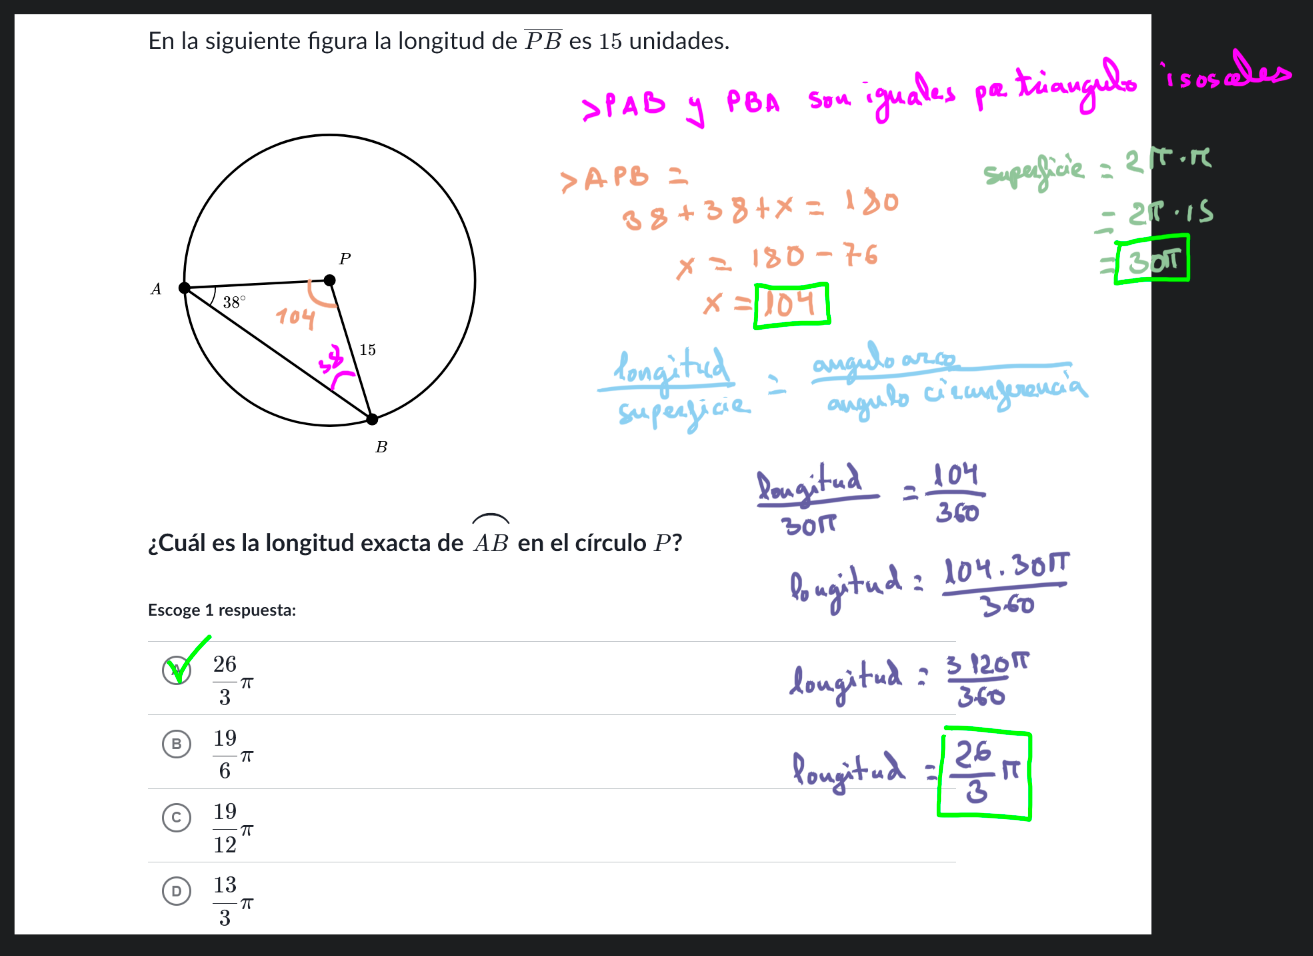 En la siguiente figura la longitud de PB es 15 unidades.
>PAB y PBA son iguales por triangulo isosceles
A
P
B
38°
15
104
38
>APB =
38+38+x = 180
x = 180 - 76
x = 104
superficie = 2π·r
= 2π·15
= 30π
longitud / superficie = angulo arco / angulo circunferencia
longitud / 30π = 104 / 360
longitud = 104·30π / 360
longitud = 3120π / 360
longitud = 26/3 π
¿Cuál es la longitud exacta de AB en el círculo P?
Escoge 1 respuesta:
A 26/3 π
B 19/6 π
C 19/12 π
D 13/3 π